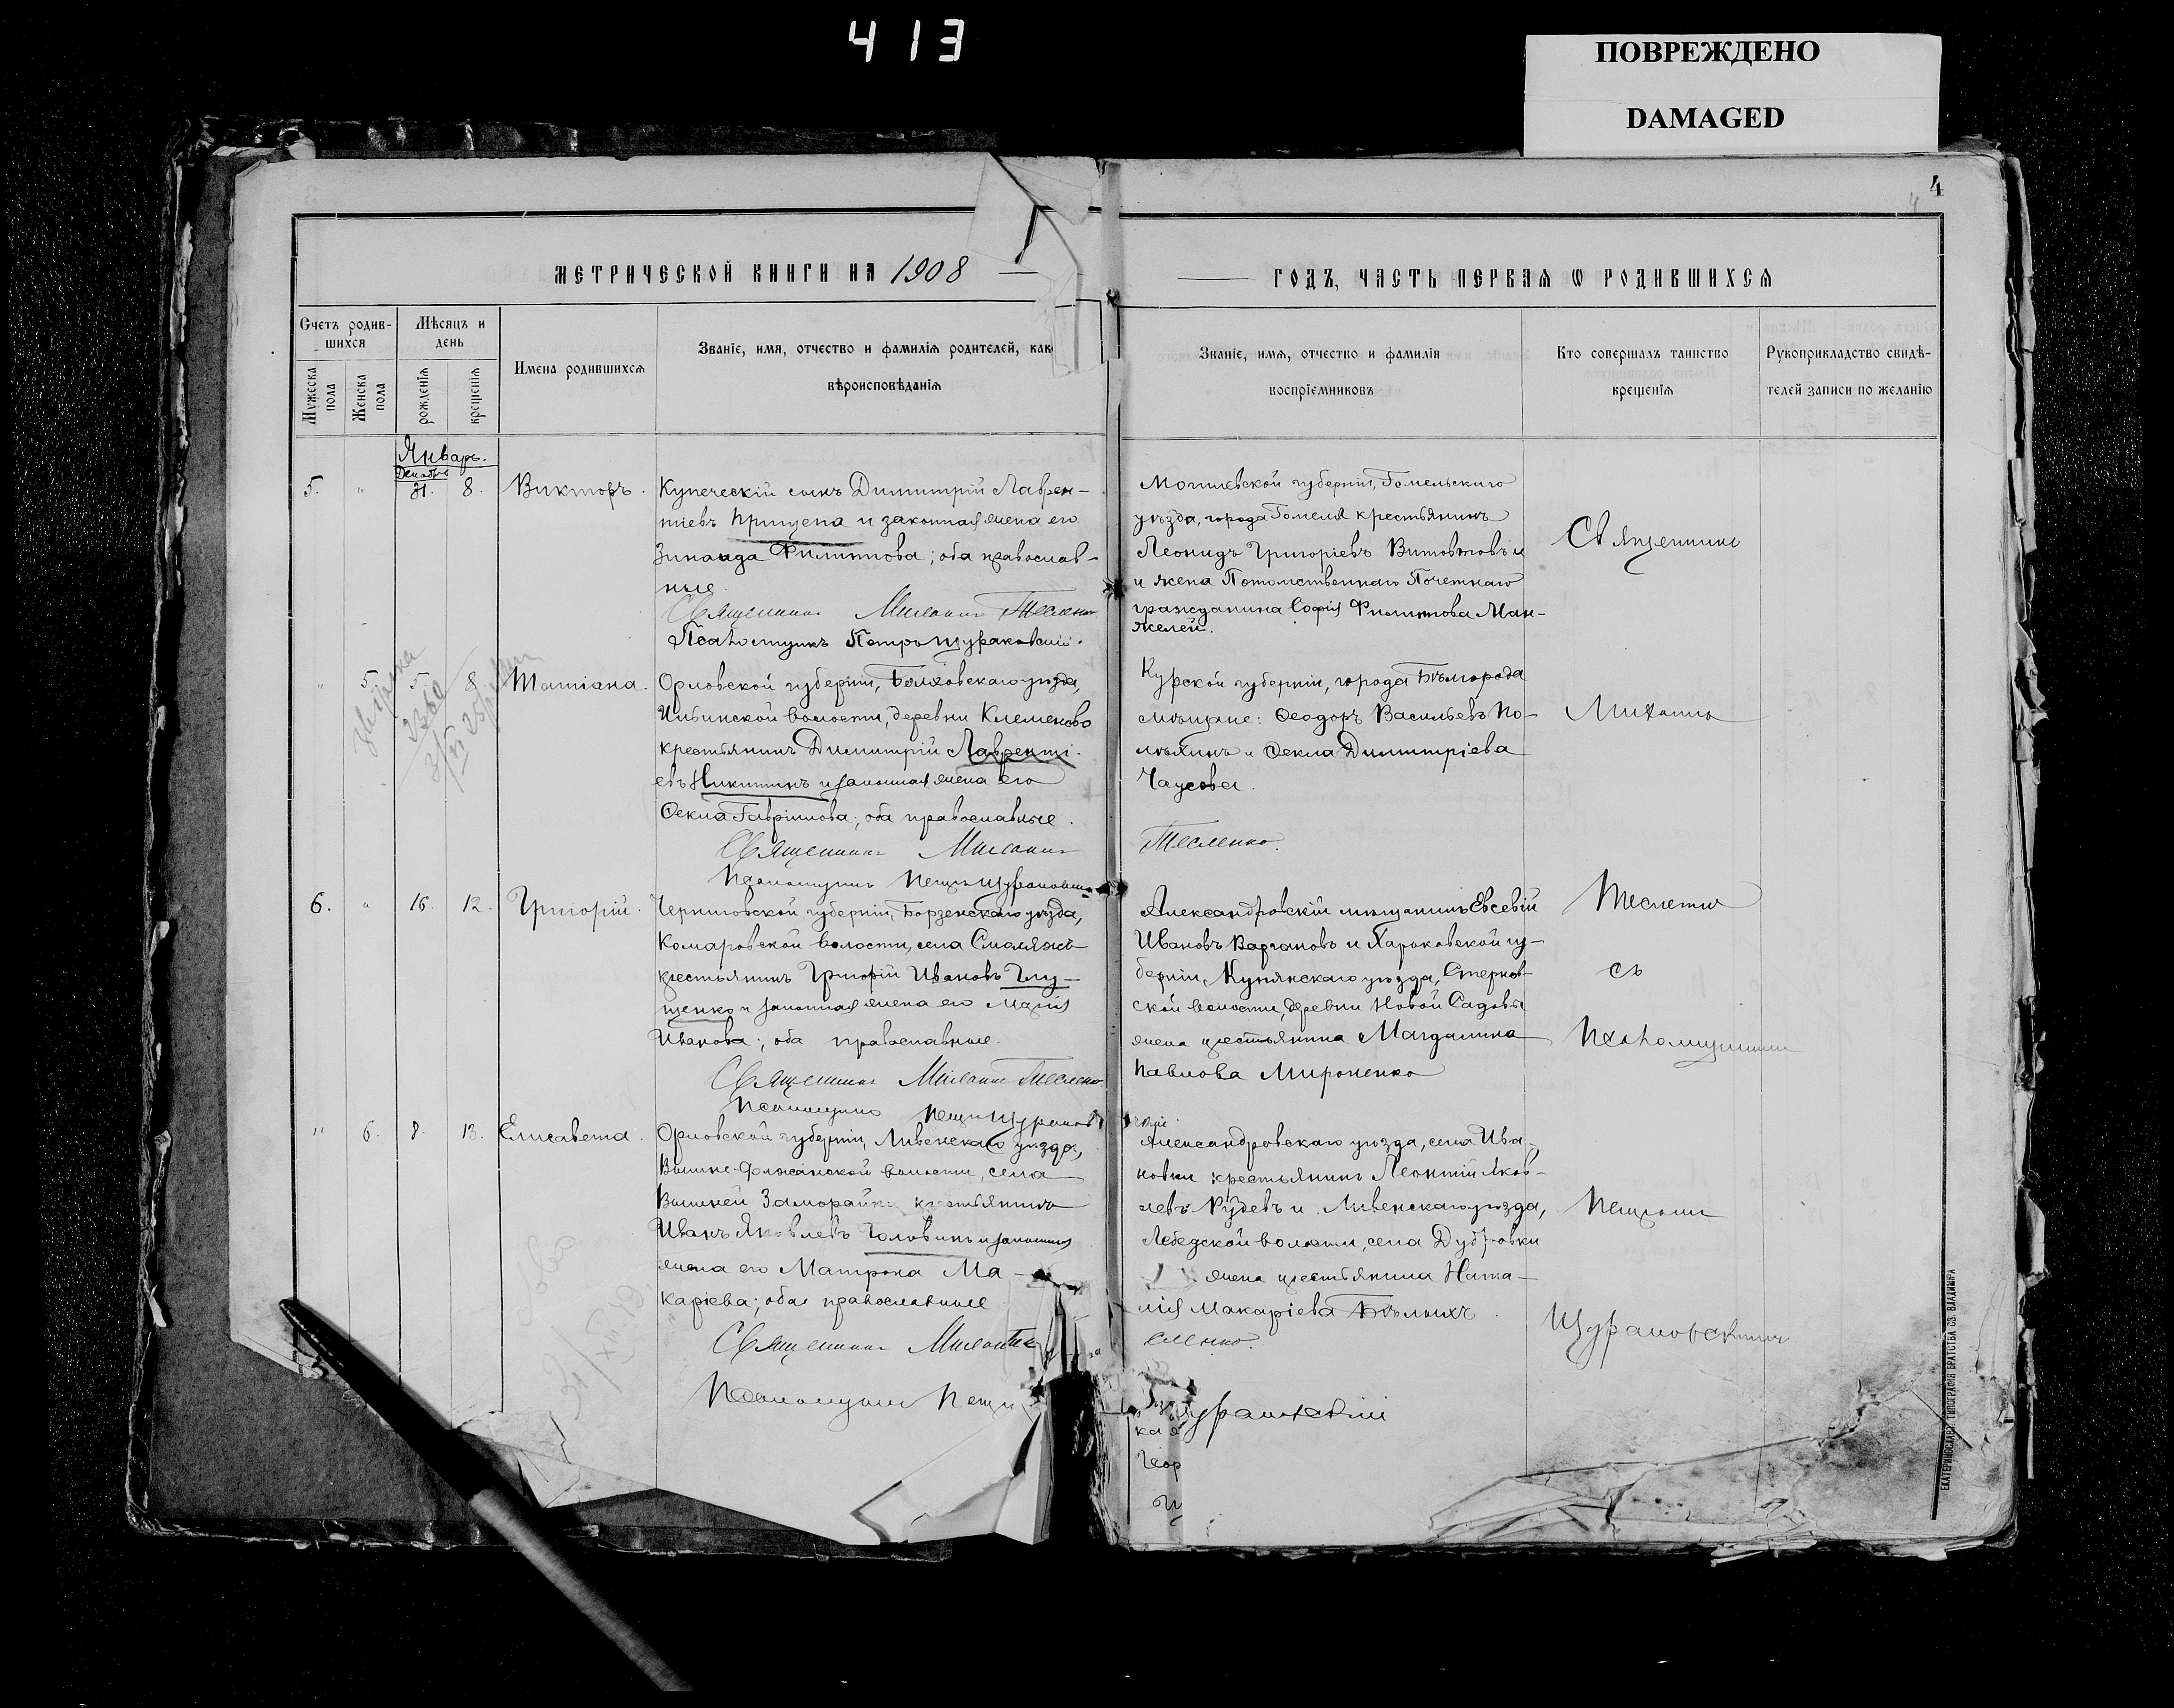 413
ПОВРЕЖДЕНО
DAMAGED
4
МЕТРИЧЕСКОЙ КНИГИ НА 1908
ГОДЪ, ЧАСТЬ ПЕРВАЯ Ѡ РОДИВШИХСЯ
Счетъ родив-
шихся
Мужеска пола
Женска пола
Мѣсяцъ и
день
рожденія
крещенія
Имена родившихся
Званіе, имя, отчество и фамилія родителей, как
вѣроисповѣданія
Званіе, имя, отчество и фамилія
воспріемниковъ
Кто совершалъ таинство
крещенія
Рукоприкладство свидѣ-
телей записи по желанію
Январь.
Декабрь
5. " 31. 8. Викторъ.
Купеческій сынъ Димитрій Лаврен-
тіевъ Прицепа и законная жена его
Зинаида Филиппова; оба православ-
ные
Священникъ Михаилъ Тесленко
Псаломщикъ Петръ Щураковскій.
Могилевской губерніи, Гомельскаго
уѣзда, города Гомеля крестьянинъ
Леонидъ Григоріевъ
и жена Потомственнаго Почетнаго
гражданина Софія Филиппова Ман-
желей.
" 5 5 8 Татіана.
Орловской губерніи, Болховскаго уѣзда,
Ильинской волости, деревни Клеменово
крестьянинъ Димитрій Лавренті-
евъ Никитинъ и законная жена его
Ѳекла Гавріилова; оба православные.
Священникъ Михаилъ
Тесленко.
Псаломщикъ Петръ Щураковскій
Курской губерніи, города Бѣлгорода
мѣщане: Ѳеодоръ Васильевъ По-
и Ѳекла Димитріева
Чаусова.
6. " 16. 12. Григорій.
Черниговской губерніи, Борзенскаго уѣзда,
Комаровской волости, села
крестьянинъ Григорій Ивановъ Глу-
щенко и законная жена его Марія
Иванова; оба православные.
Священникъ Михаилъ Тесленко
Псаломщикъ Петръ Щураковскій
Александровскій мѣщанинъ Евсевій
Ивановъ Вартановъ и Харьковской гу-
берніи, Купянскаго уѣзда,
ской волости, деревни Новой Садовы
жена крестьянина Магдалина
Павлова Мироненко
" 6. 8. 13. Елисавета.
Орловской губерніи, Ливенскаго уѣзда,
волости, села
Вышней крестьянинъ
Иванъ Яковлевъ Головинъ и законная
жена его Матрона Ма-
каріева; оба православные
Священникъ Михаилъ Те
сленко.
Псаломщикъ Петръ
Щураковскій
Александровскаго уѣзда, села Ива-
новки крестьянинъ Леонтій Яков-
левъ Рудевъ и Ливенскаго уѣзда,
Лебедской волости, села Дубровки
жена крестьянина Ната-
лія Макаріева Бѣлыхъ.
Священникъ
Михаилъ
Тесленко
съ
Псаломщикомъ
Петромъ
Щураковскимъ
ЕКАТЕРИНОСЛАВЪ, ТИПОГРАФІЯ БРАТСТВА СВ. ВЛАДИМІРА